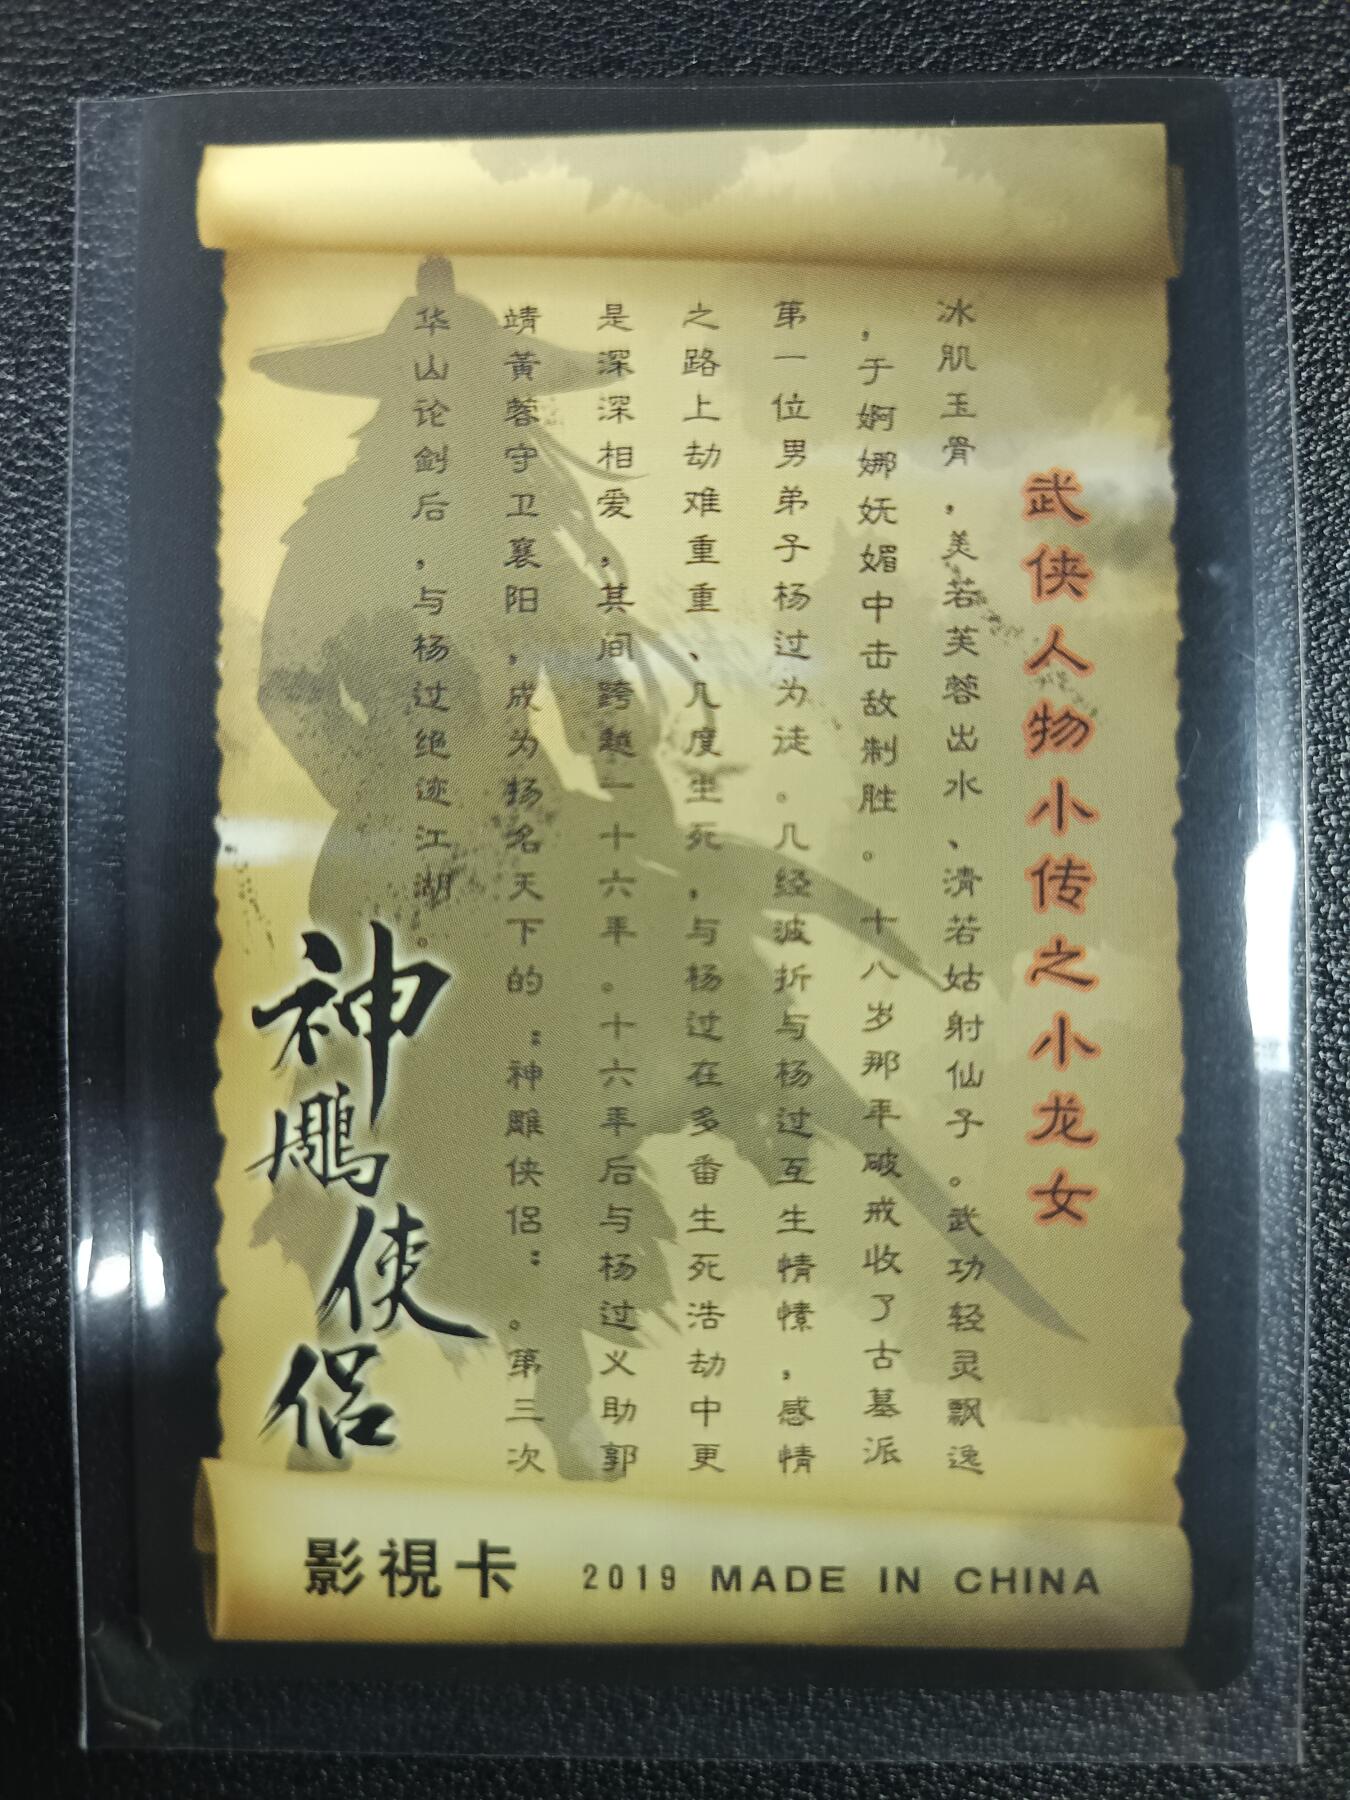 武侠人物小传之小龙女
冰肌玉骨，美若芙蓉出水、清若姑射仙子。武功轻灵飘逸
，于婀娜妩媚中击敌制胜。十八岁那年破戒收了古墓派
第一位男弟子杨过为徒。几经波折与杨过互生情愫，感情
之路上劫难重重、几度生死，与杨过在多番生死浩劫中更
是深深相爱，其间跨越一十六年。十六年后与杨过义助郭
靖黄蓉守卫襄阳，成为扬名天下的：神雕侠侣：。第三次
华山论剑后，与杨过绝迹江湖。
神鵰俠侶
影視卡 2019 MADE IN CHINA